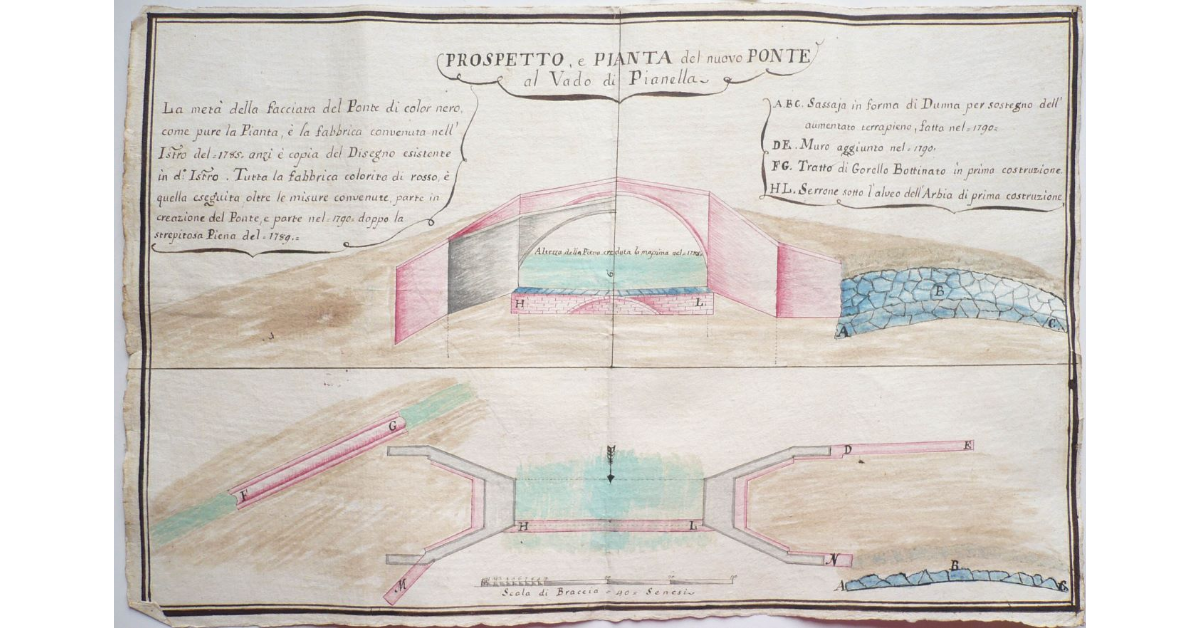 PROSPETTO, e PIANTA del nuovo PONTE
al Vado di Pianella.
La metà della facciata del Ponte di color nero,
come pure la Pianta, è la fabbrica convenuta nell'
Istro del 1785. anzi è copia del Disegno esistente
in do. Istro. Tutta la fabbrica colorita di rosso, è
quella eseguita oltre le misure convenute, parte in
creazione del Ponte, e parte nel 1790. doppo la
strepitosa Piena del 1789.
A B C. Sassaja in forma di Dunna per sostegno dell'
aumentato terrapieno, fatta nel 1790.
DE. Muro aggiunto nel 1790.
FG. Tratto di Gorello Bottinato in prima costruzione.
HL. Serrone sotto l'alveo dell'Arbia di prima costruzione
Altezza della Piena creduta la massima nel
H
L
B
A
C
G
F
D
E
H
L
M
N
A
B
C
Scala di Braccia 40 Senesi